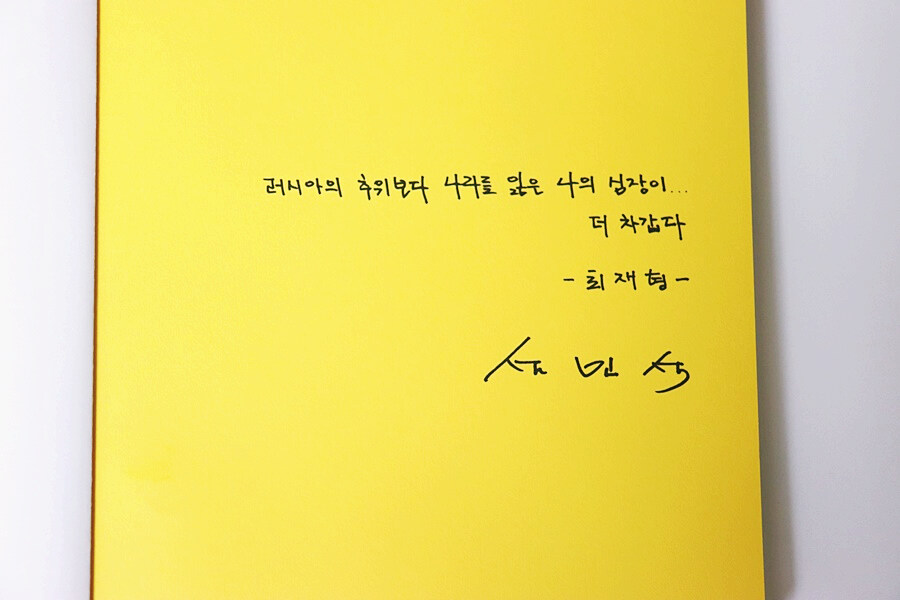 러시아의 추위보다 나라를 잃은 나의 심장이...
더 차갑다
- 최재형 -
설민석